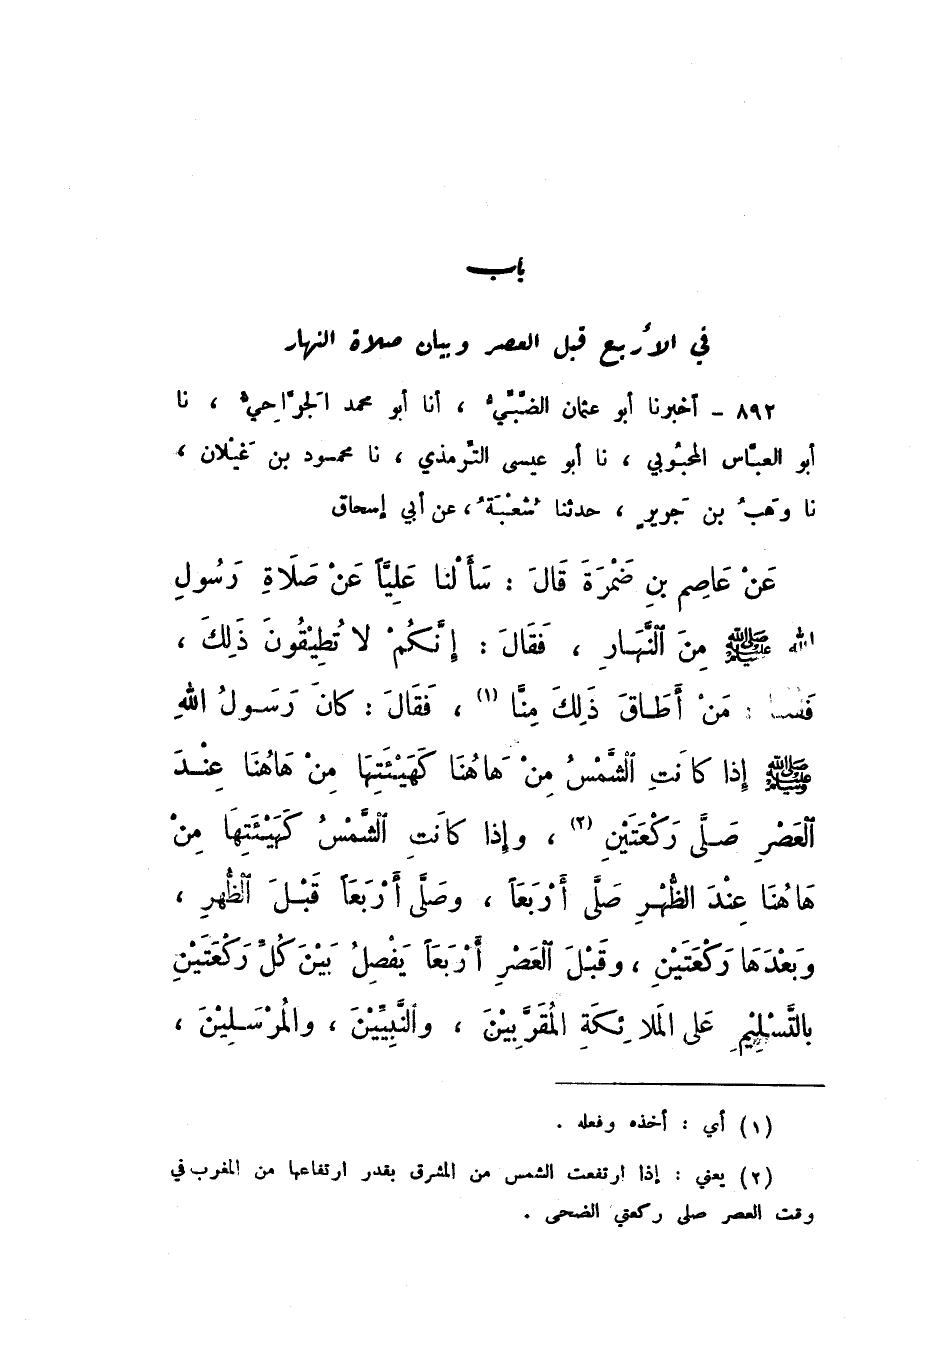 باب
في الأربع قبل العصر وبيان صلاة النهار
٨٩٢ - أخبرنا أبو عثمان الضَّبِّيُّ ، أنا أبو محمد الجَرَّاحِيُّ ، نا
أبو العبَّاس المحبُوبي ، نا أبو عيسى التَّرمذي ، نا محمود بن غَيْلان ،
نا وَهَبُ بن جَرِيرٍ ، حدثنا شُعْبَةُ ، عن أبي إسحاق
عَنْ عَاصِمِ بنِ ضَمْرَةَ قَالَ : سَأَلْنا عَلِيَّاً عَنْ صَلَاةِ رَسُولِ
الله ﷺ مِنَ ٱلنَّهَارِ ، فَقَالَ : إِنَّكُمْ لا تُطِيْقُونَ ذَلِكَ ،
: مَنْ أَطَاقَ ذَلِكَ مِنَّا (١) ، فَقَالَ : كانَ رَسُولُ اللهِ
ﷺ إِذا كانَتِ ٱلشَّمْسُ مِنْ هَاهُنَا كَهَيْئَتِهَا مِنْ هَاهُنَا عِنْدَ
ٱلعَصْرِ صَلَّى رَكْعَتَيْنِ (٢) ، وإِذا كانَتِ ٱلشَّمْسُ كَهَيْئَتِهَا مِنْ
هَاهُنَا عِنْدَ الظُّهْرِ صَلَّى أَرْبَعَاً ، وصَلَّى أَرْبَعَاً قَبْلَ ٱلظُّهرِ ،
وبَعْدَهَا رَكْعَتَيْنِ ، وقَبْلَ ٱلعَصْرِ أَرْبَعَاً يَفْصِلُ بَيْنَ كُلِّ رَكْعَتَيْنِ
بالتَّسْلِيْمِ عَلى المَلائِكَةِ المُقَرَّبِيْنَ ، وٱلنَّبِيِّيْنَ ، والمُرْسَلِيْنَ ،
(١) أي : أخذه وفعله .
(٢) يعني : إذا ارتفعت الشمس من المشرق بقدر ارتفاعها من المغرب في
وقت العصر صلى ركعتي الضحى .